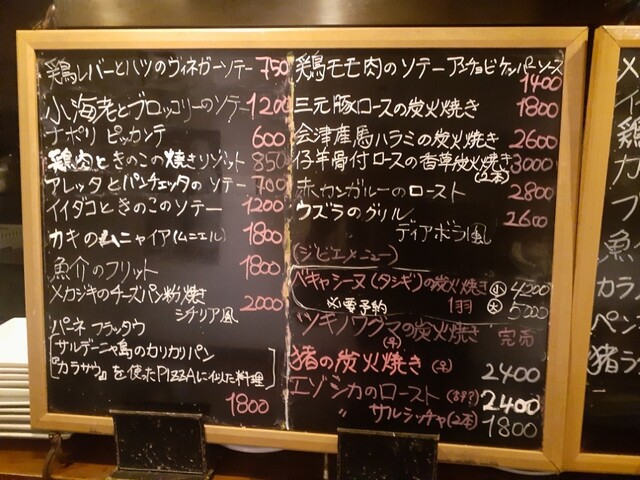 鶏レバーとハツのヴィネガーソテー 750
小海老とブロッコリーのソテー 1200
ナポリ ピッカンテ 600
鶏肉ときのこの焼きリゾット 850
アレッタとパンチェッタのソテー 700
イイダコときのこのソテー 1200
カキのムニャイア(ムニエル) 1800
魚介のフリット 1800
メカジキのチーズパン粉焼き
シチリア風 2000
パーネ フラッタウ
サルデーニャ島のカリカリパン
『カラサウ』を使ったPIZZAに似た料理
1800
鶏モモ肉のソテー アンチョビケッパーソース
1400
三元豚ロースの炭火焼き 1800
会津産馬ハラミの炭火焼き 2600
仔羊骨付ロースの香草炭火焼き 3000
(2本)
赤カンガルーのロースト 2800
ウズラのグリル 2600
ディアボラ風
(ジビエメニュー)
ベキャシーヌ(タシギ)の炭火焼き 小 4200
必要予約 1羽 大 5000
ツキノワグマの炭火焼き 完売
猪の炭火焼き 2400
エゾシカのロースト 2400
〃 サルシッチャ(2本) 1800
メ
イ
鶏
カ
フ
魚
カラ
ペン
猪ラ